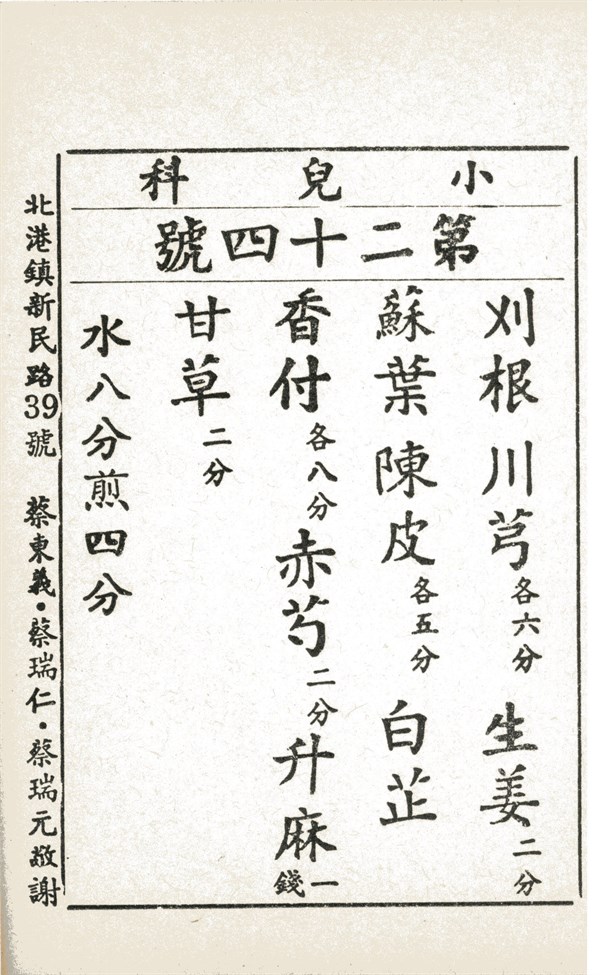 小兒科
第二十四號
刈根川芎各六分 生姜二分
蘇葉陳皮各五分 白芷
香付各八分 赤芍二分 升麻一錢
甘草二分
水八分煎四分
北港鎮新民路39號 蔡東義・蔡瑞仁・蔡瑞元敬謝